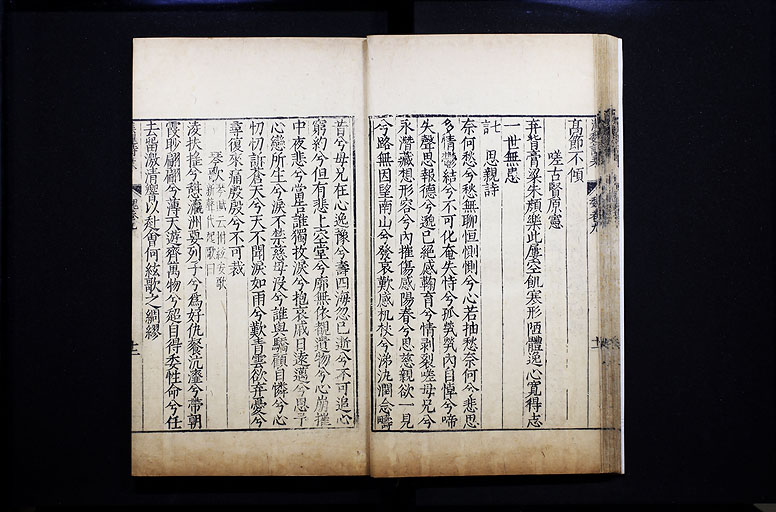 高節不傾
嗟古賢原憲
弃背膏粱朱顏樂此屢空飢寒形陋體逸心寛得志
一世無患
思親詩
奈何愁兮愁無聊恒惻惻兮心若抽愁奈何兮悲思
多情鬱結兮不可化奄失恃兮孤煢煢内自悼兮啼
失聲思報德兮邈已絶感鞠育兮情剥裂嗟母兄兮
永潛藏想形容兮内摧傷感陽春兮思慈親欲一見
兮路無因望南山兮發哀歎感机杖兮涕汍瀾念疇
昔兮母兄在心逸豫兮壽四海忽已逝兮不可追心
窮約兮但有悲上空堂兮廓無依覩遺物兮心崩摧
中夜悲兮當告誰獨抆淚兮抱哀戚日遠邁兮思予
心戀所生兮淚不禁慈母没兮誰與驕顧自憐兮心
忉忉訴蒼天兮天不聞淚如雨兮歎青雲欲弃憂兮
尋復來痛殷殷兮不可裁
琴歌
凌扶搖兮憩瀛洲要列子兮爲好仇餐沆瀣兮帶朝
霞眇翩翩兮薄天遊齊萬物兮超自得委性命兮任
去留激清響以赴會何絃歌之綢繆